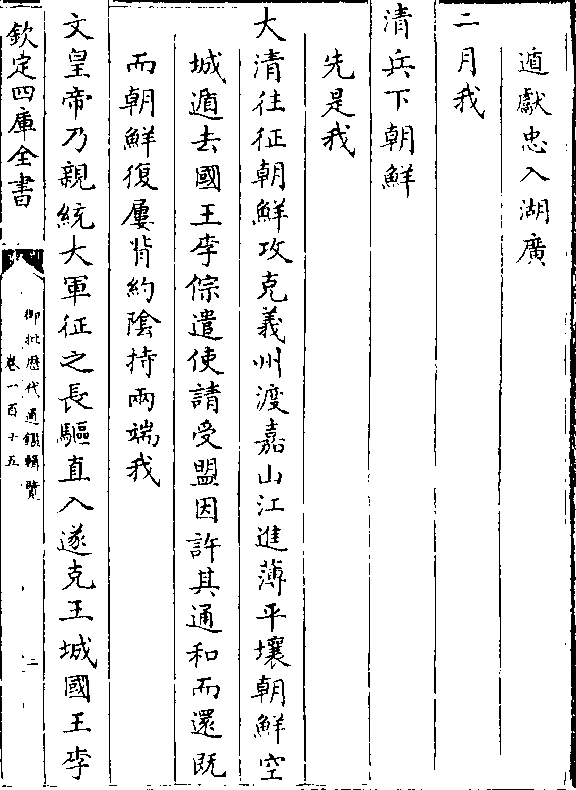 遁獻忠入湖廣
二月我
清兵下朝鮮
先是我
大清往征朝鮮攻克義州渡嘉山江進薄平壤朝鮮空
城遁去國王李倧遣使請受盟因許其通和而還既
而朝鮮復屢背約陰持兩端我
文皇帝乃親統大軍征之長驅直入遂克王城國王李
欽定四庫全書
御批歴代通鑑輯覽
卷一百十五
二